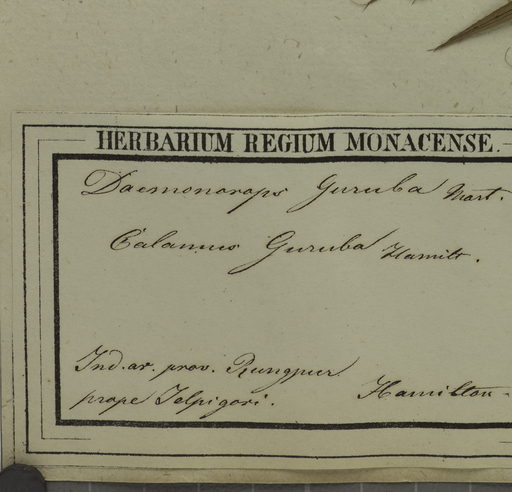 HERBARIUM REGIUM MONACENSE.
Daemonorops Guruba Mart.
Calamus Guruba Hamilt.
Ind. or. prov. Rungpur
prope Jelpigori. Hamilton